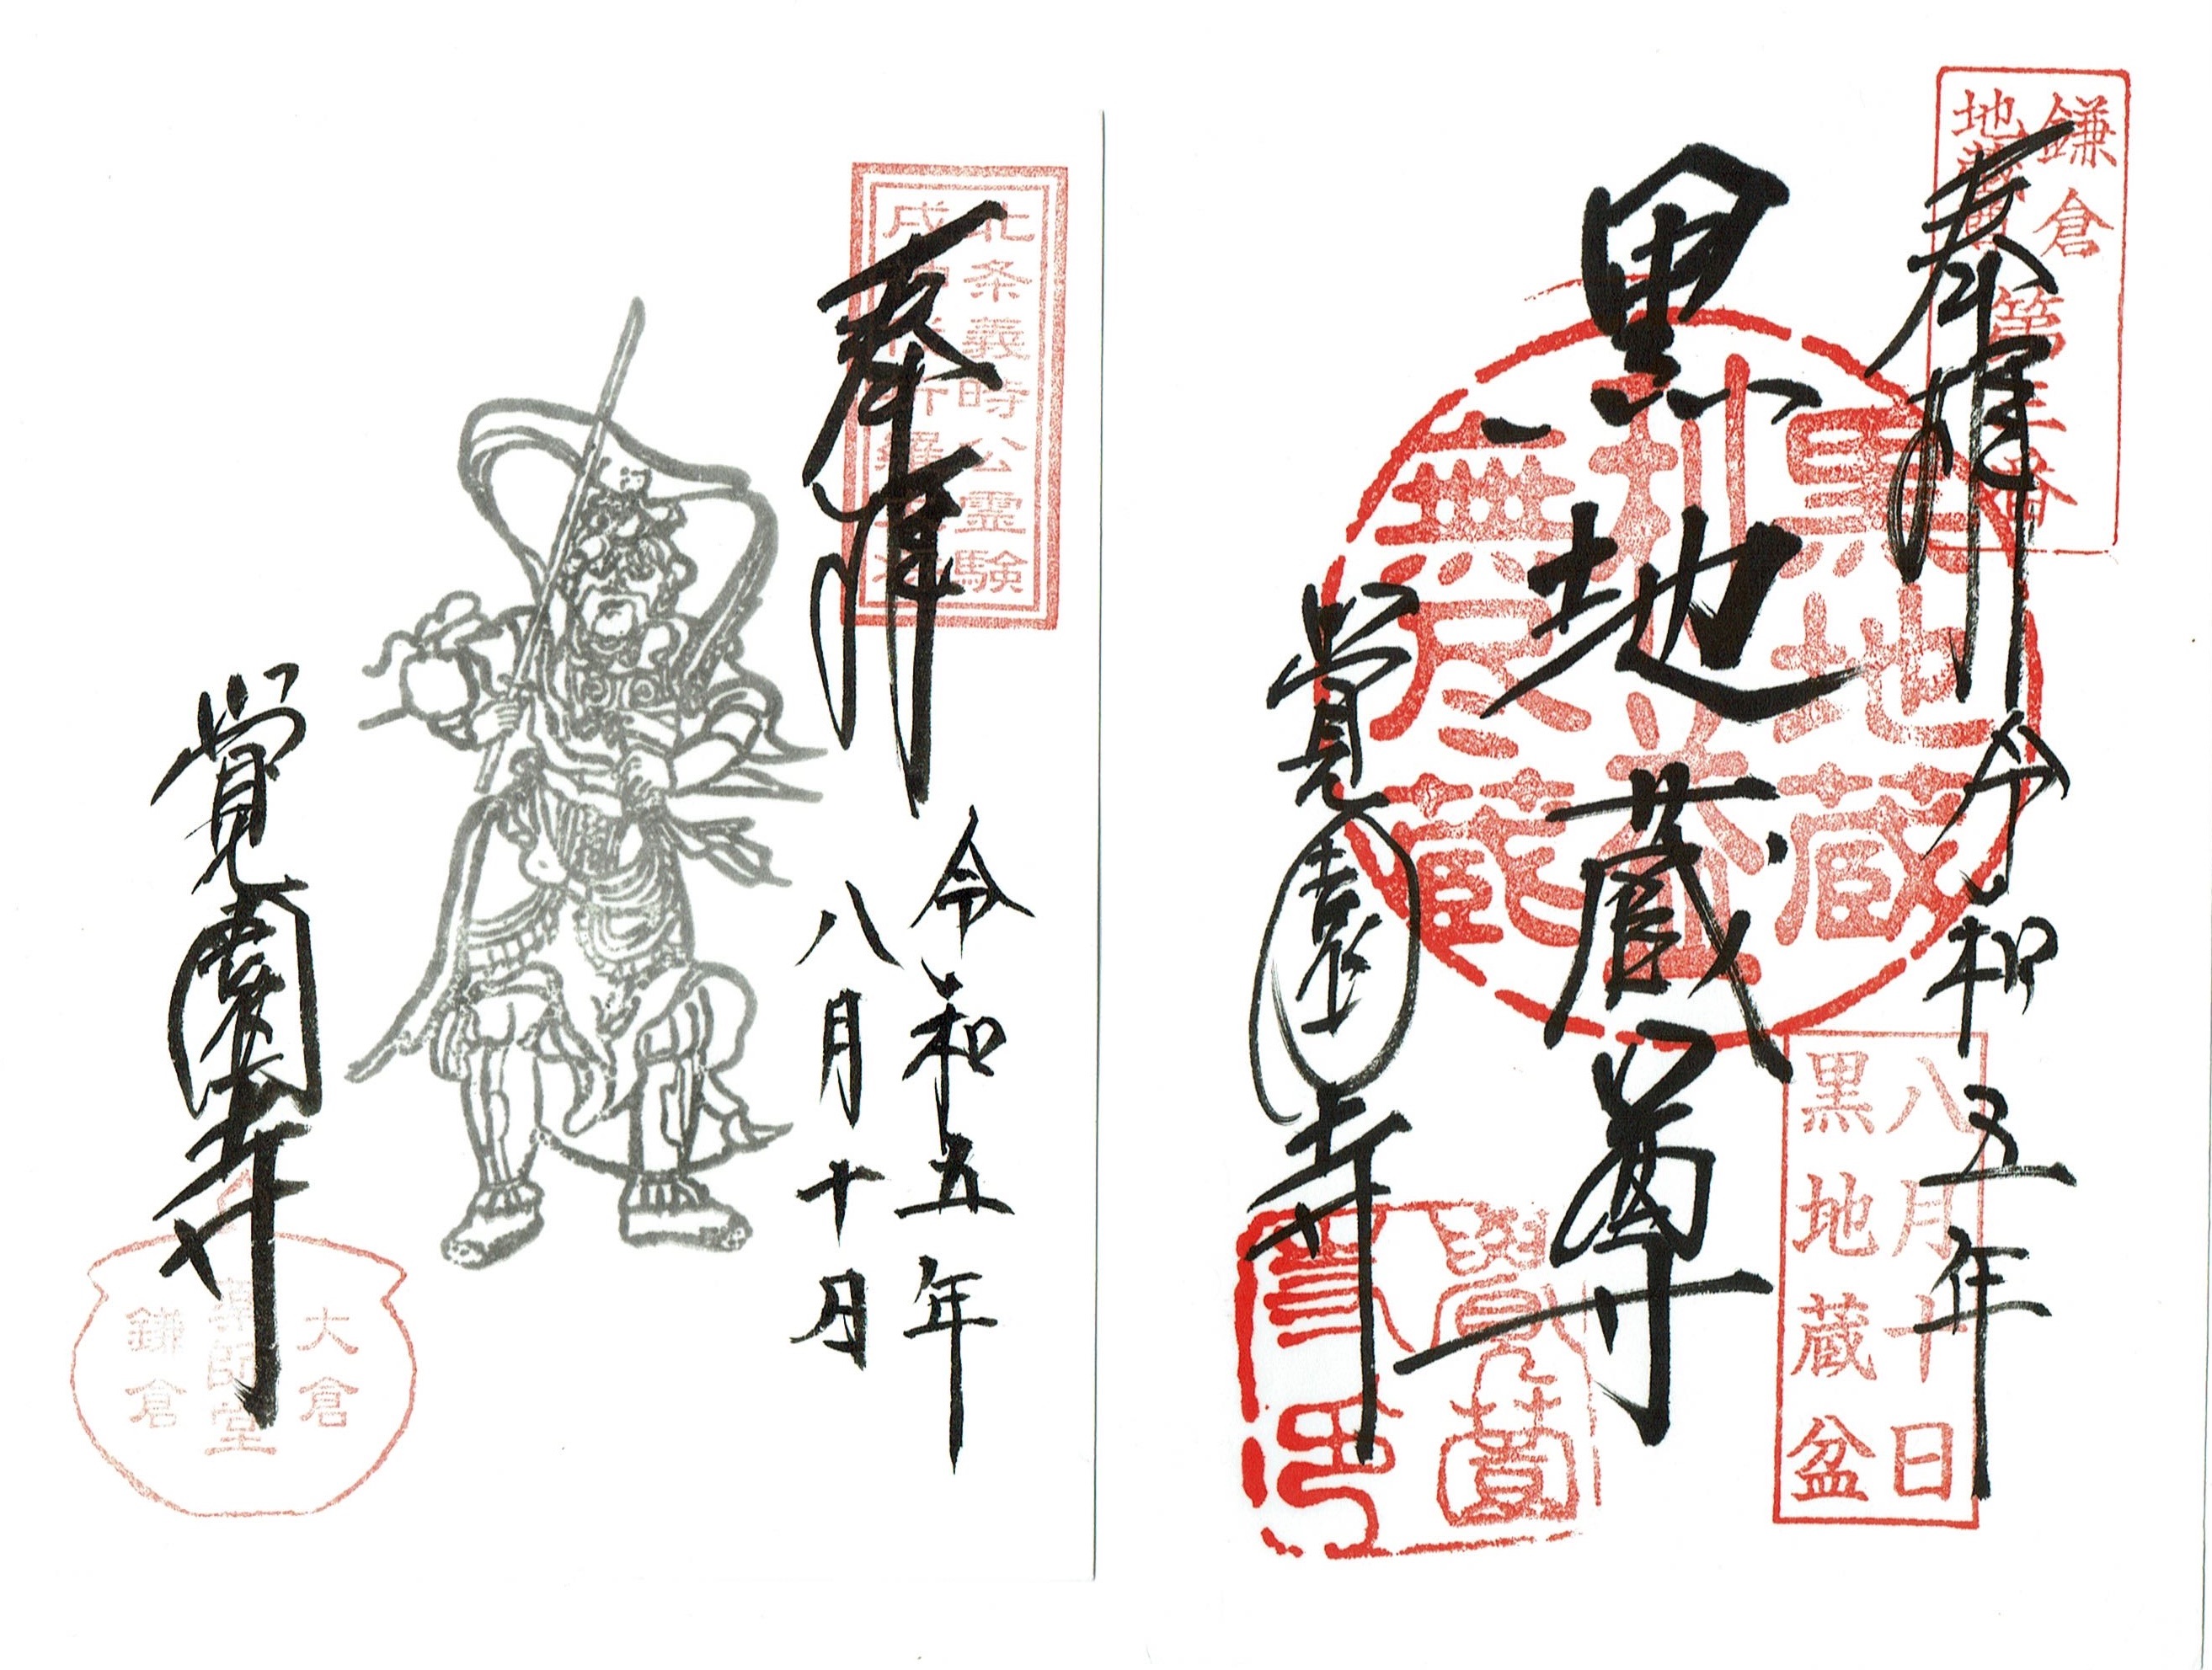 鎌倉
地蔵
第三番
奉拝
令和五年
八月十日
黒地蔵盆
黒地蔵尊
黒地蔵
利益
無尽蔵
覚園寺
覺園
寺印
北条義時公霊験
戌
奉拝
令和五年
八月十日
覚園寺
大倉
薬師堂
鎌倉